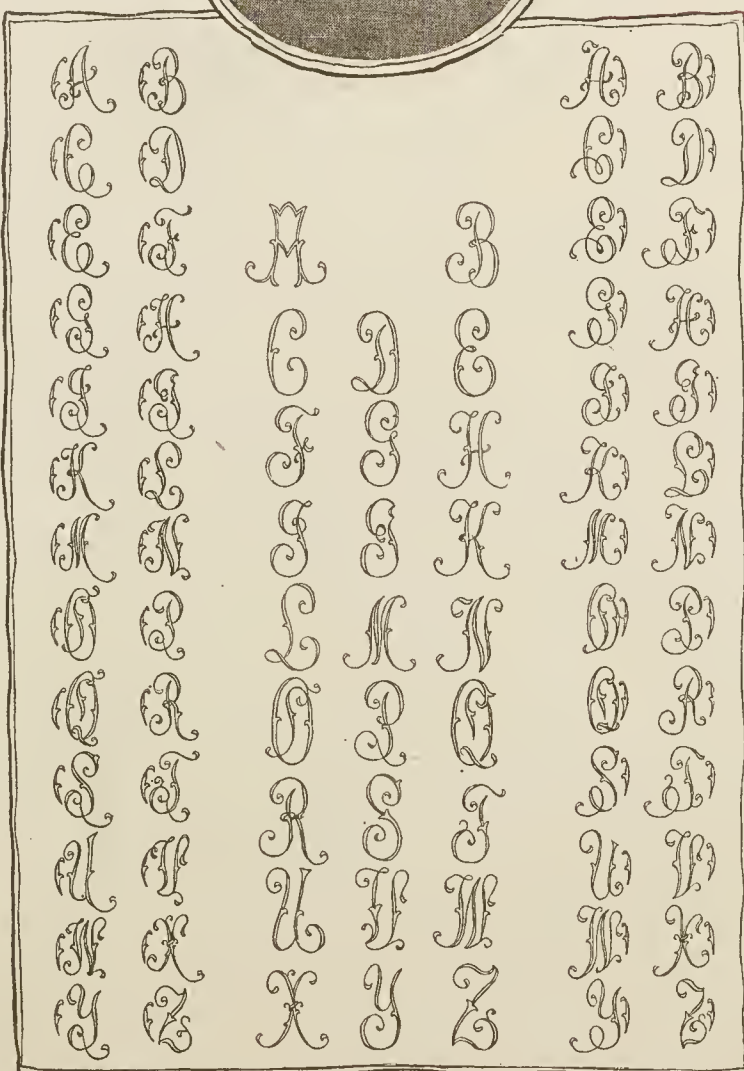 A B
C D
E F
G H
I J
K L
M N
O P
Q R
S T
U V
W X
Y Z
A B
C D E
F G H
I J K
L M N
O P Q
R S T
U V W
X Y Z
A B
C D
E F
G H
I J
K L
M N
O P
Q R
S T
U V
W X
Y Z